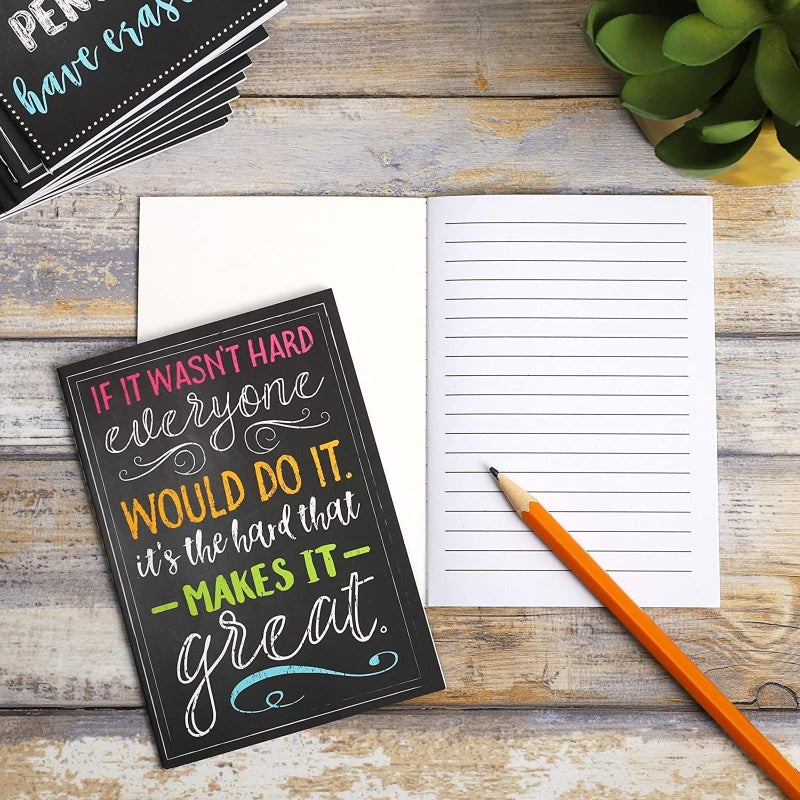 PEN
have eras
IF IT WASN'T HARD
everyone
WOULD DO IT.
it's the hard that
MAKES IT
great.